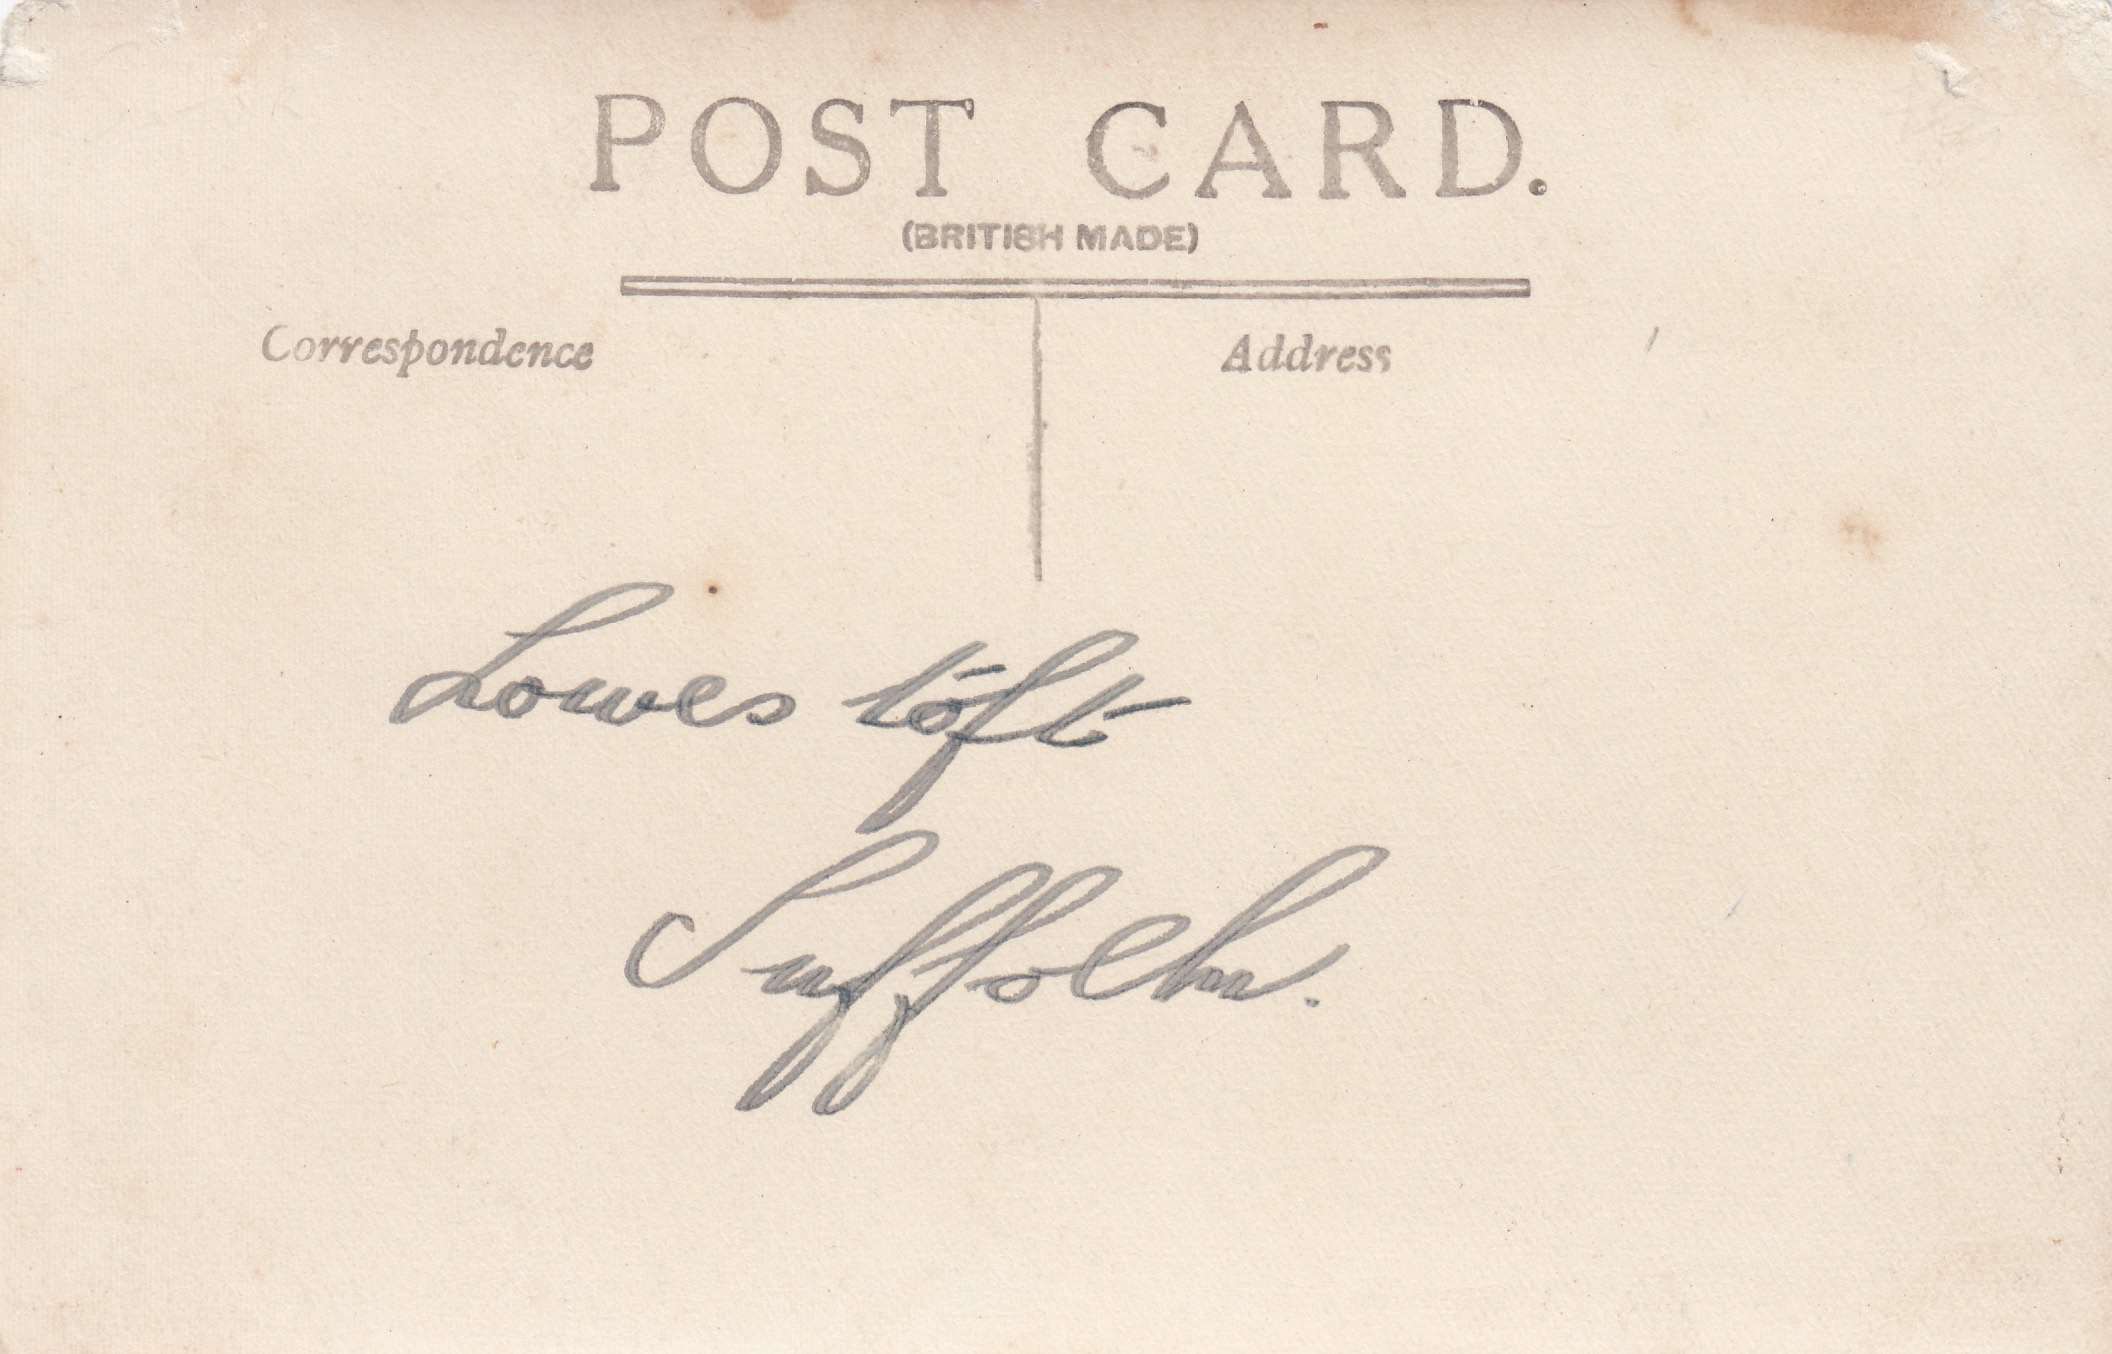 POST CARD.
(BRITISH MADE)
Correspondence
Address
Lowestoft
Suffolk.